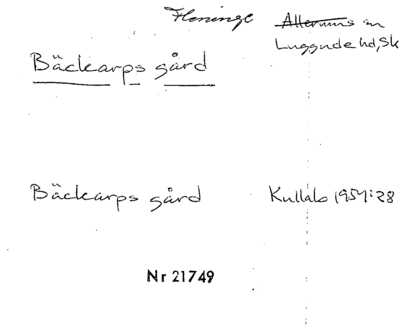 Fleninge ~~Allerums~~ sn
Luggude hd, Sk
Bäckarps gård
Bäckarps gård Kullab 1954:28
Nr 21749